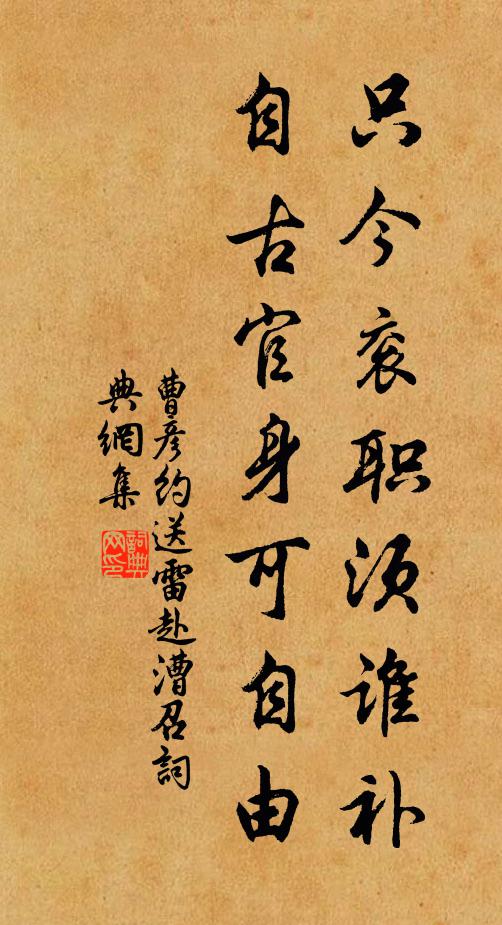 只今衮职须谁补
自古官身可自由
曹彦约送雷赴漕召詞
典網集
詞典网印